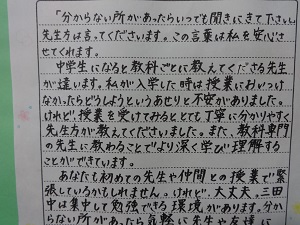 「分からない所があったらいつでも聞きにきて下さい」
先生方は言ってくださいます。この言葉は私を安心さ
せてくれます。
中学生になると教科ごとに教えてくださる先生
が違います。私が入学した時は授業においつけ
なかったらどうしようというあせりと不安がありました。
けれど、授業を受けてみるととても丁寧に分かりやすく
先生方が教えてくださいました。また、教科専門
の先生に教わることでより深く学び理解する
ことができています。
あなたも初めての先生や仲間との授業で緊
張しているかもしれません。けれど、大丈夫。三田
中は集中して勉強できる環境があります。分か
らない所があったら気軽に先生や友達に